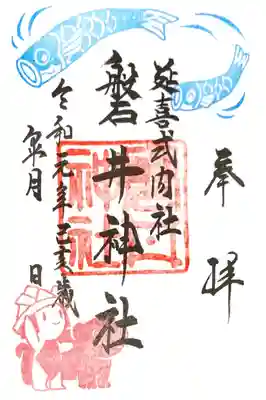 奉拝
延喜式内社
磐井神社
令和元年己亥歳
皐月 日